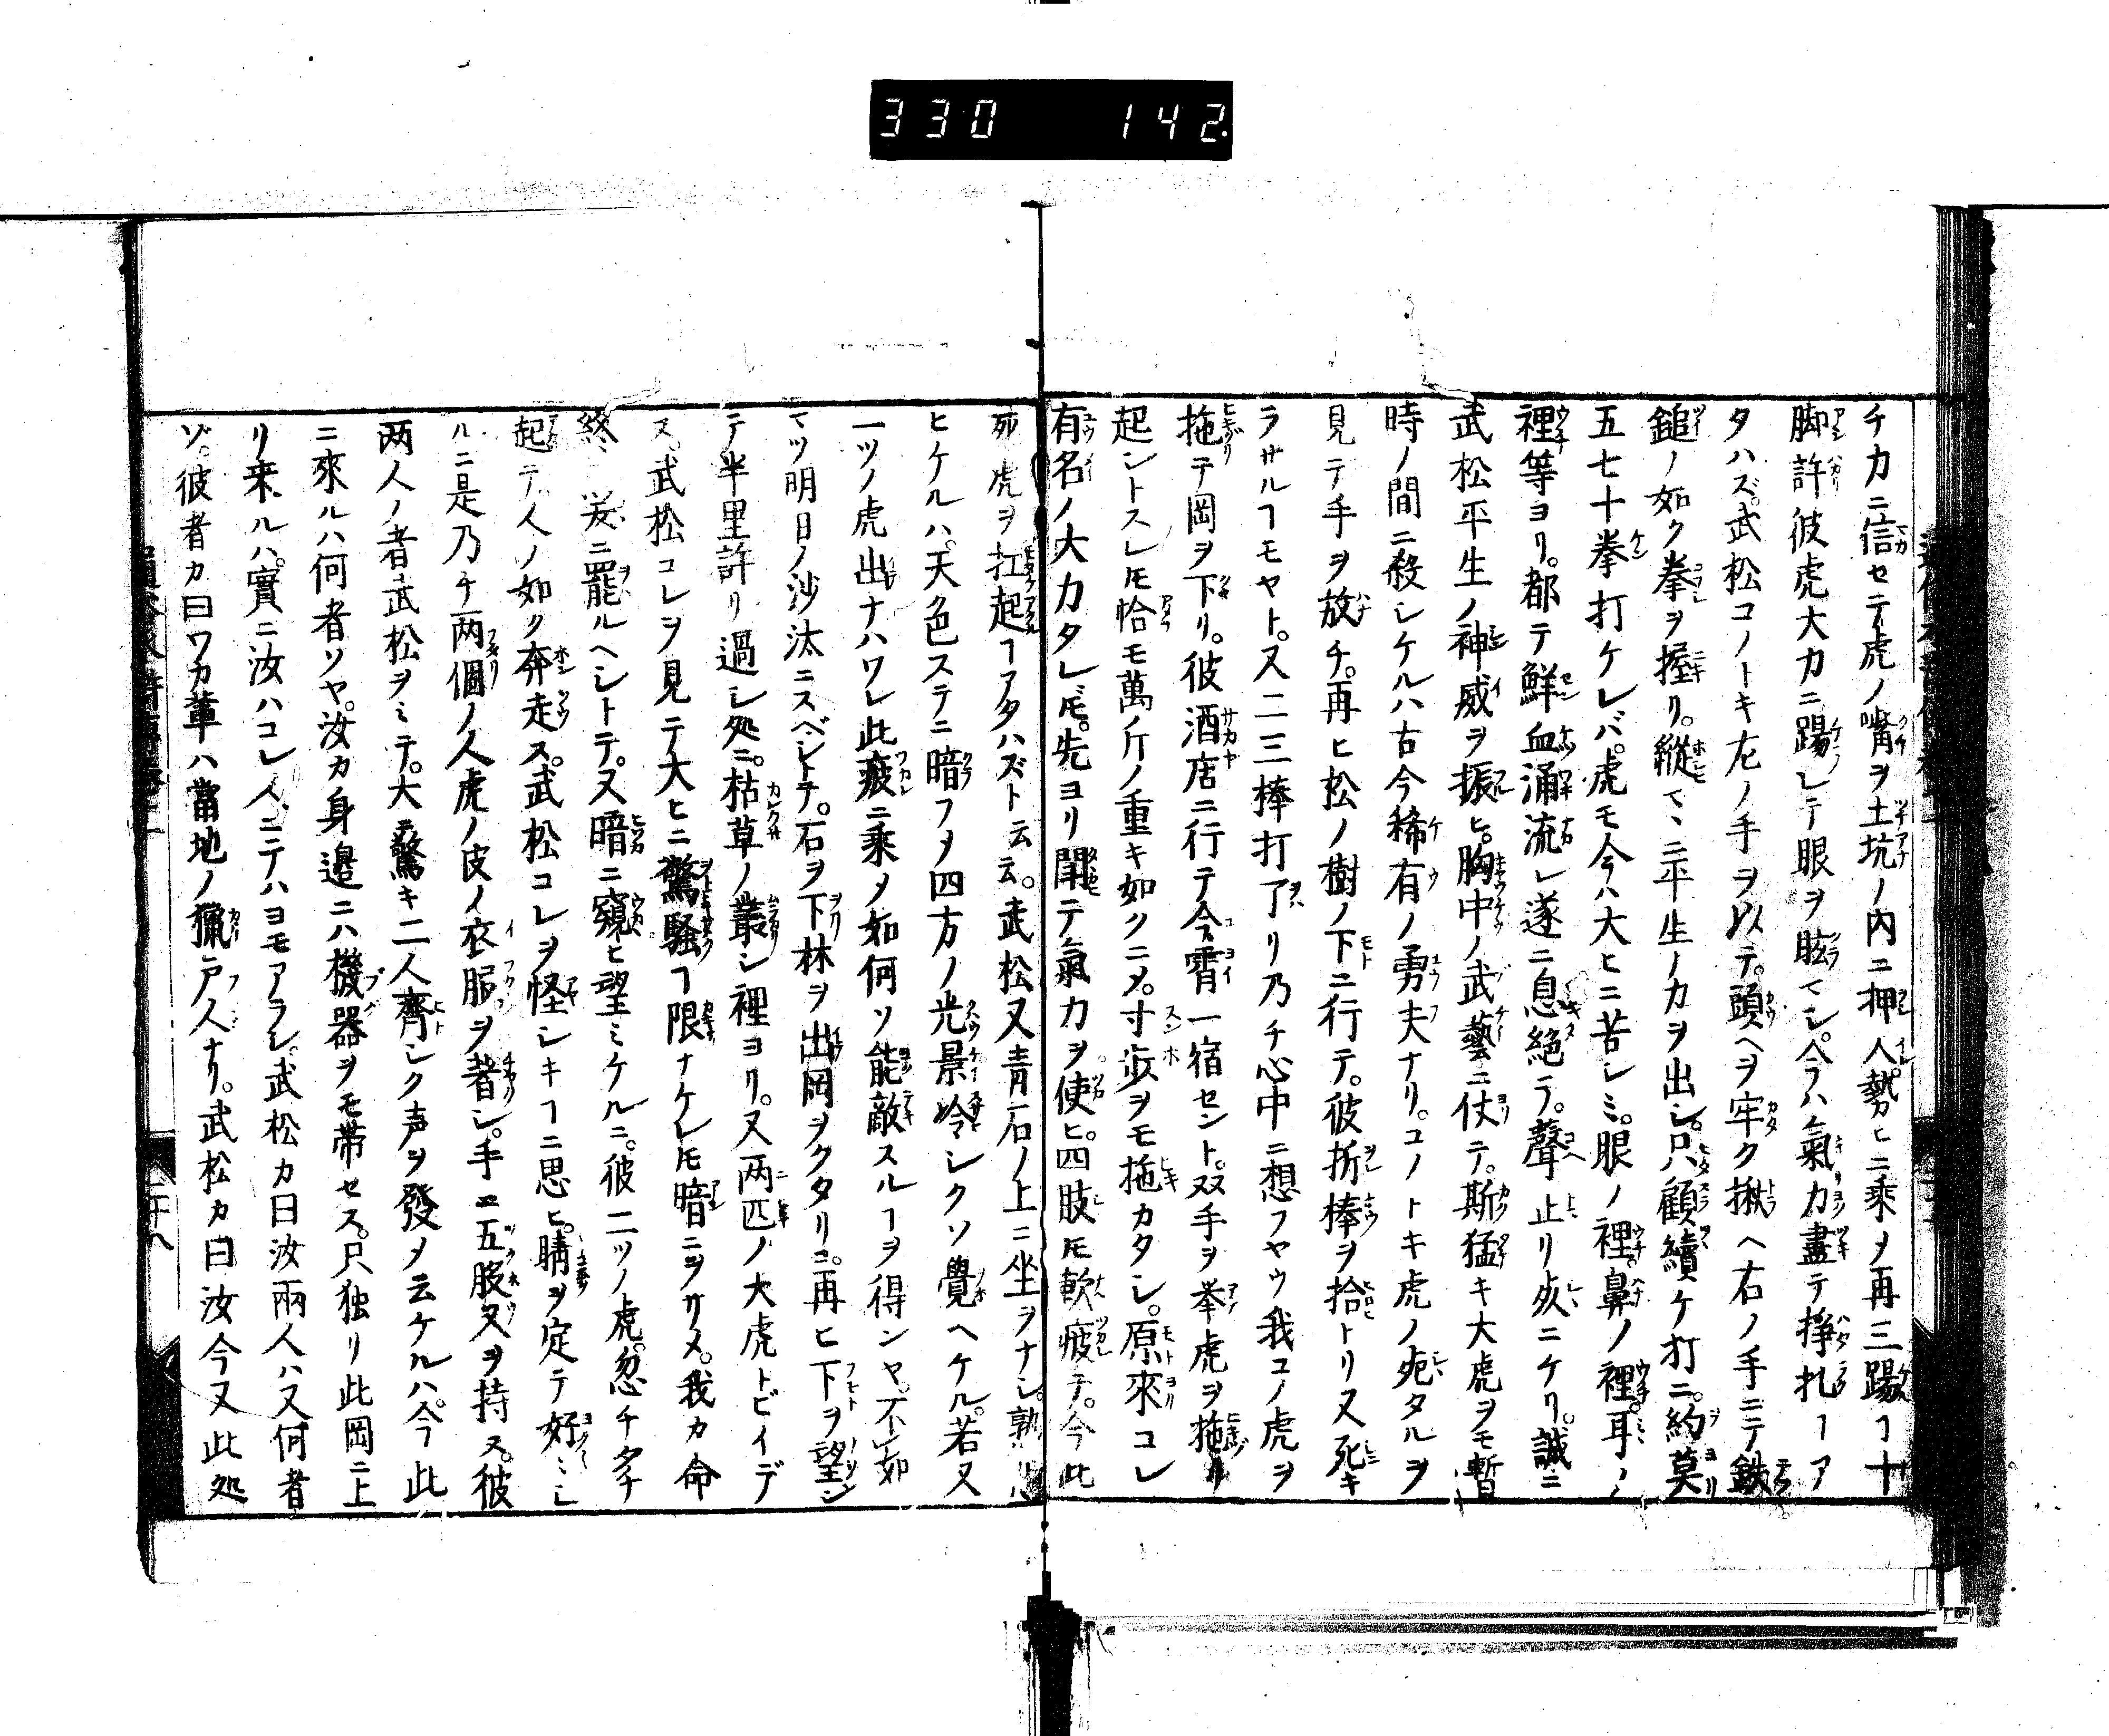 330 142
チカニ信セテ虎ノ嘴ヲ土坑ノ内ニ押入。勢ヒニ乘メ再三踢ヿ十
脚許彼虎大カニ踢レテ眼ヲ眩マシ。今ハ氣力盡テ掙扎ヿア
タハズ。武松コノトキ左ノ手ヲ以テ。頭ヘヲ牢ク揪ヘ右ノ手ニテ鉄
鎚ノ如ク拳ヲ握リ。縱マヽニ平生ノカヲ出シ。只顧續ケ打ニ。約莫
五七十拳打ケレバ。虎モ今ハ大ヒニ苦シミ。眼ノ裡。鼻ノ裡。耳ノ
裡等ヨリ。都テ鮮血涌流レ遂ニ息絶テ。聲止リ死ニケリ。誠ニ
武松平生ノ神威ヲ振ヒ。胸中ノ武藝ニ仗テ。斯猛キ大虎ヲモ暫
時ノ間ニ殺シケルハ古今稀有ノ勇夫ナリ。コノトキ虎ノ死タルヲ
見テ手ヲ放チ。再ヒ松ノ樹ノ下ニ行テ。彼折棒ヲ拾トリ又死キ
ラサルヿモヤト。又二三棒打了リ乃チ心中ニ想フヤウ我コノ虎ヲ
拖テ岡ヲ下リ。彼酒店ニ行テ今霄一宿セント。双手ヲ举虎ヲ拖リ
起ントスレ𪜈恰モ萬斤ノ重キ如クニメ。寸歩ヲモ拖カタシ。原來コレ
有名ノ大力タレ𪜈。先ヨリ鬧テ氣力ヲ使ヒ。四肢𪜈軟疲テ。今此
死虎ヲ扛起ヿアタハズト云云。武松又青石ノ上ニ坐ヲナシ。熟
ヒケルハ。天色ステニ暗フメ四方ノ光景冷シクソ覺ヘケル。若又
一ツノ虎出ナハワレ此疲ニ乘メ如何ソ能敵スルヿヲ得ンヤ。不如
マツ明日ノ沙汰ニスベシトテ。石ヲ下林ヲ出岡ヲクタリニ。再ヒ下ヲ望ン
テ半里許リ過シ処ニ。枯草ノ叢シ裡ヨリ。又两匹ノ大虎トビイデ
ス。武松コレヲ見テ大ヒニ驚騒ヿ限ナケレ𪜈暗ニヲリメ。我カ命
終爰ニ罷ルヘシトテ。又暗ニ窺ヒ望ミケルニ。彼二ツノ虎。忽チタチ
起テ人ノ如ク奔走ス。武松コレヲ怪シキヿニ思ヒ。睛ヲ定テ好〻ミ
ルニ是乃チ两個ノ人虎ノ皮イ衣服ヲ著シ。手ニ五股叉ヲ持ス。彼
两人ノ者武松ヲミテ。大ニ驚キ二人齊シク声ヲ發メ云ケルハ。今此
ニ來ルハ何者ソヤ。汝カ身邉ニハ機器ヲモ帯セス。只独リ此岡ニ上
リ来ルハ。實ニ汝ハコレ人ニテハヨモアラシ。武松カ曰汝兩人ハ又何者
ゾ。彼者カ曰ワカ輩ハ當地ノ獵户人ナリ。武松カ曰汝今又此処